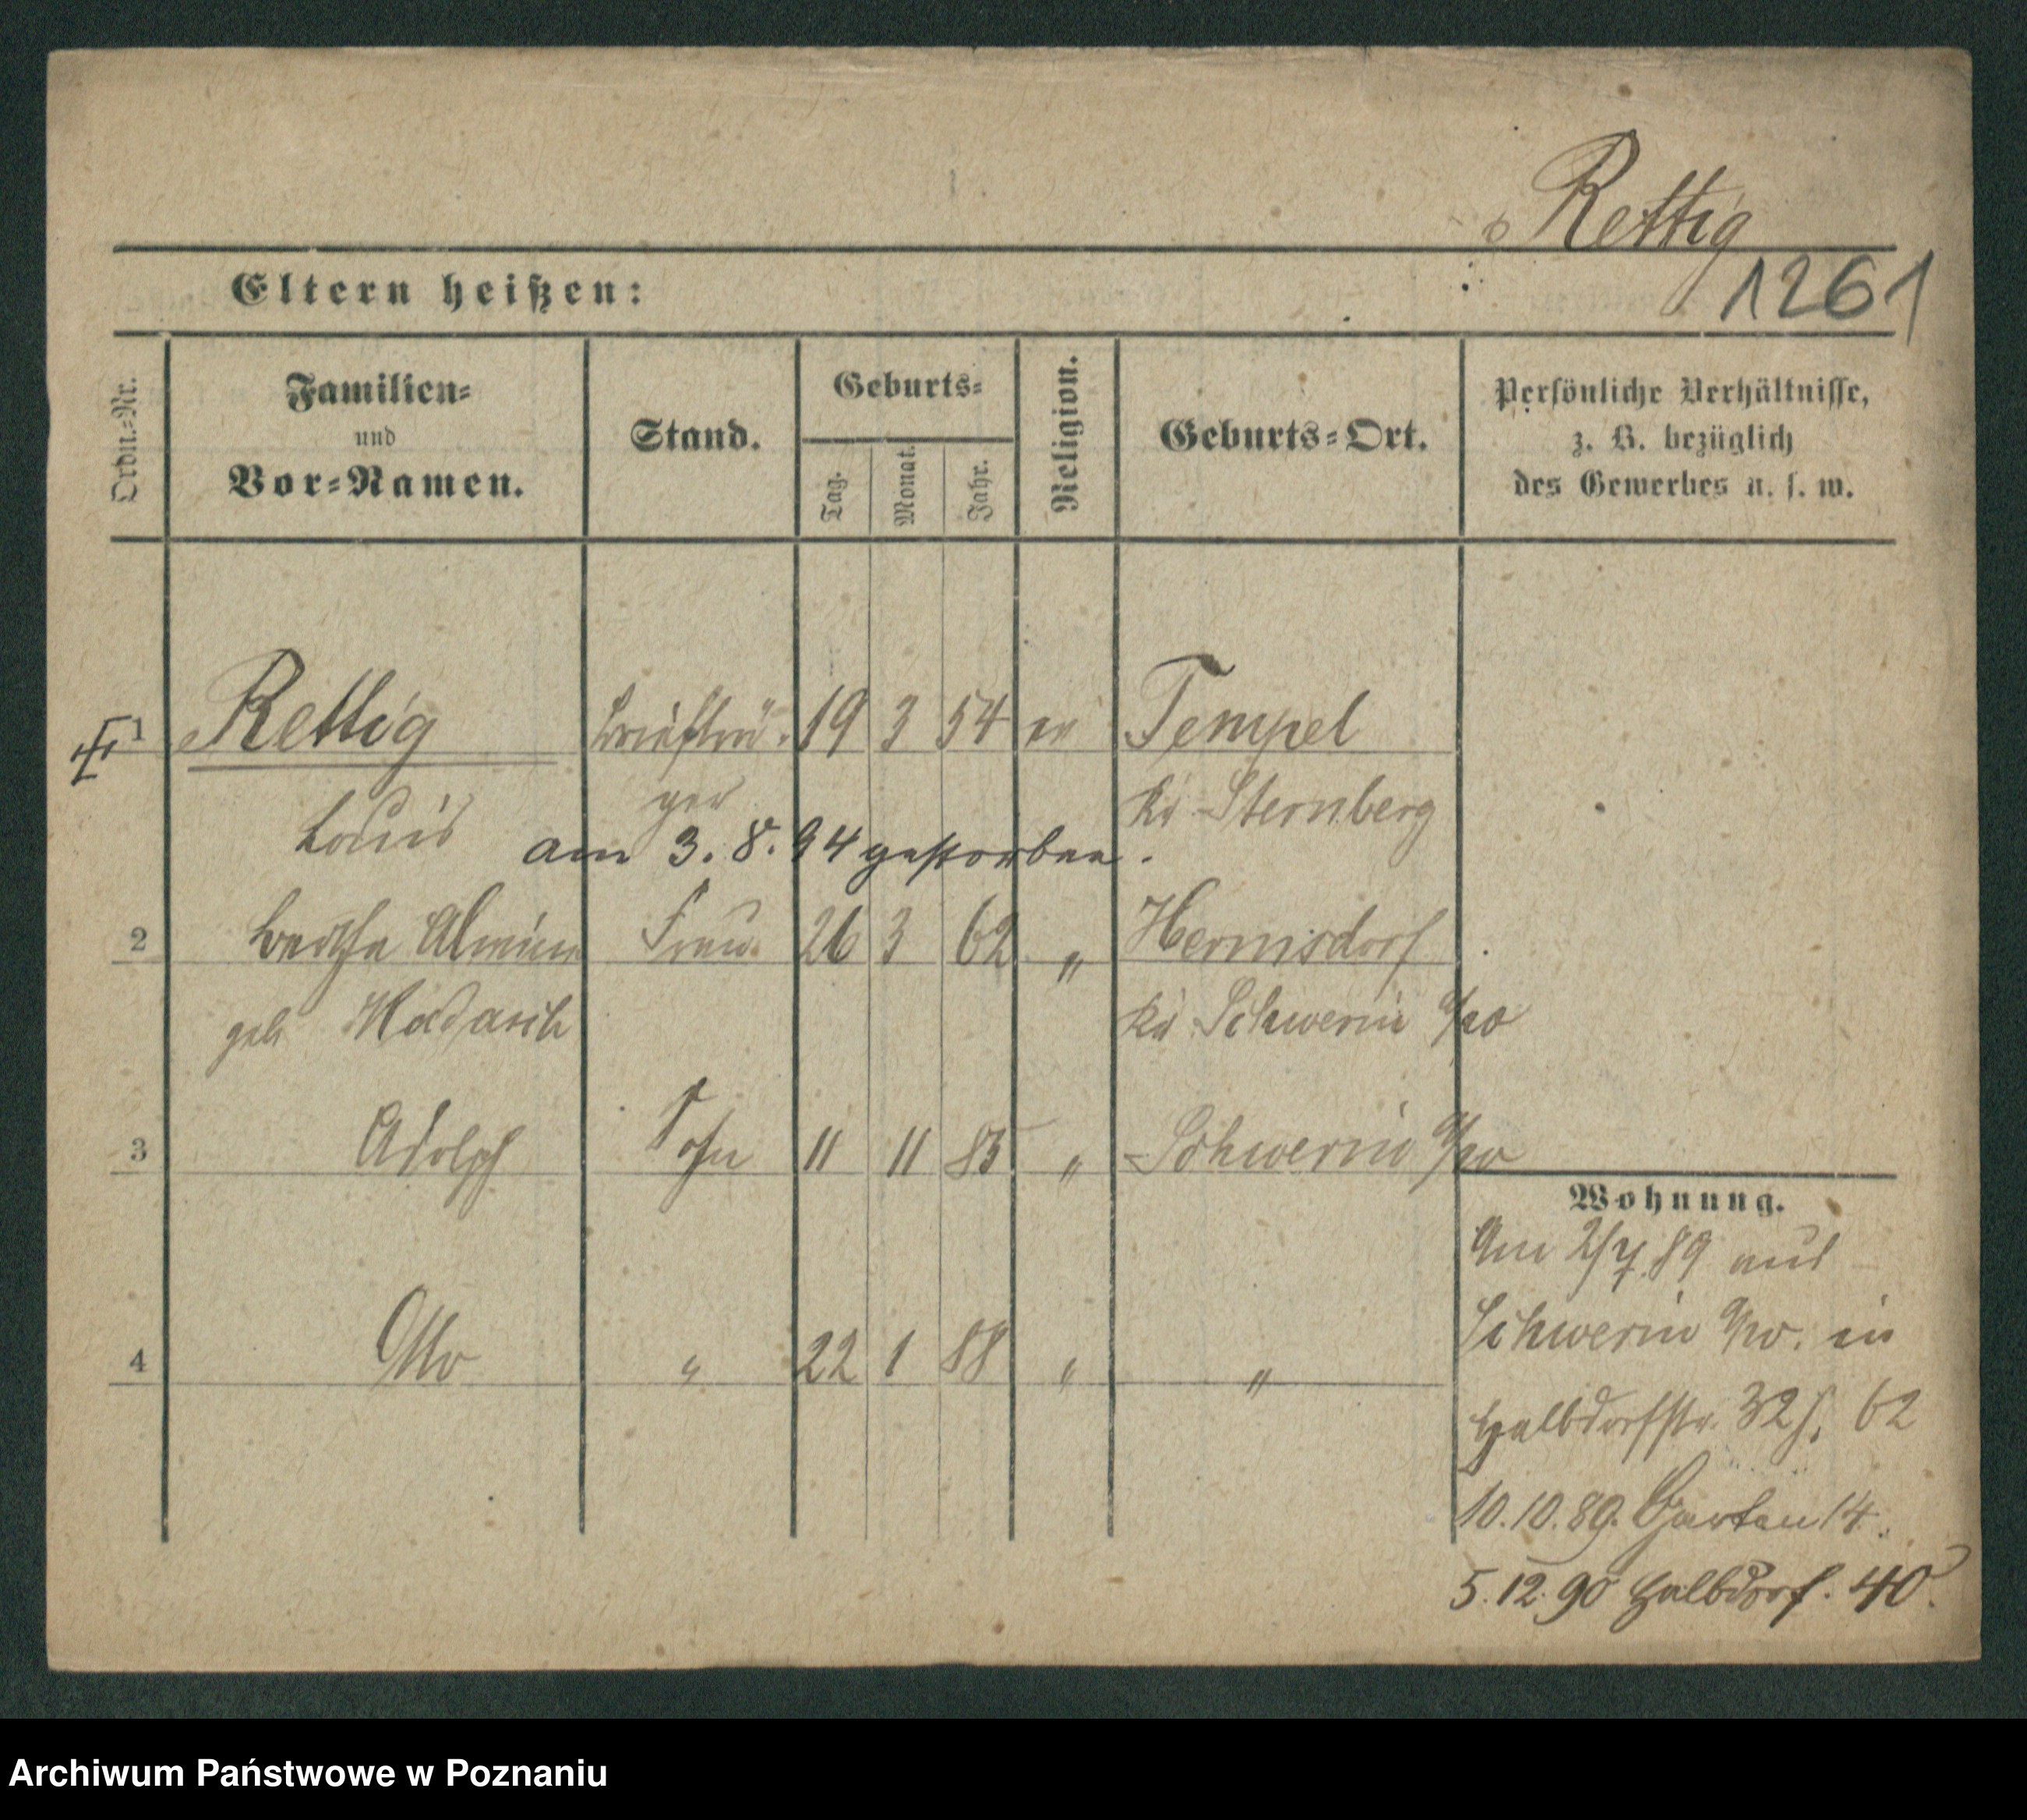 Rettig
1261
Eltern heißen:
Ordn.-Nr.
Familien-
und
Vor-Namen.
Stand.
Geburts-
Tag.
Monat.
Jahr.
Religion.
Geburts-Ort.
Persönliche Verhältnisse,
z. B. bezüglich
des Gewerbes u. s. w.
1 Rettig Briefträ- 19 3 54 ev Tempel
Louis ger Kr Sternberg
am 3. 8. 94 gestorben.
2 Bertha Frau 26 3 62 " Hermsdorf
geb Kr Schwerin a/W
3 Adolph Sohn 11 11 85 " Schwerin a/W
4 Otto " 22 1 88 " "
Wohnung.
Am 2/7 89 aus
Schwerin a/W. in
Halbdorfstr. 32 62
10.10.89. Garten 14.
5.12.90 Halbdorf. 40.
Archiwum Państwowe w Poznaniu